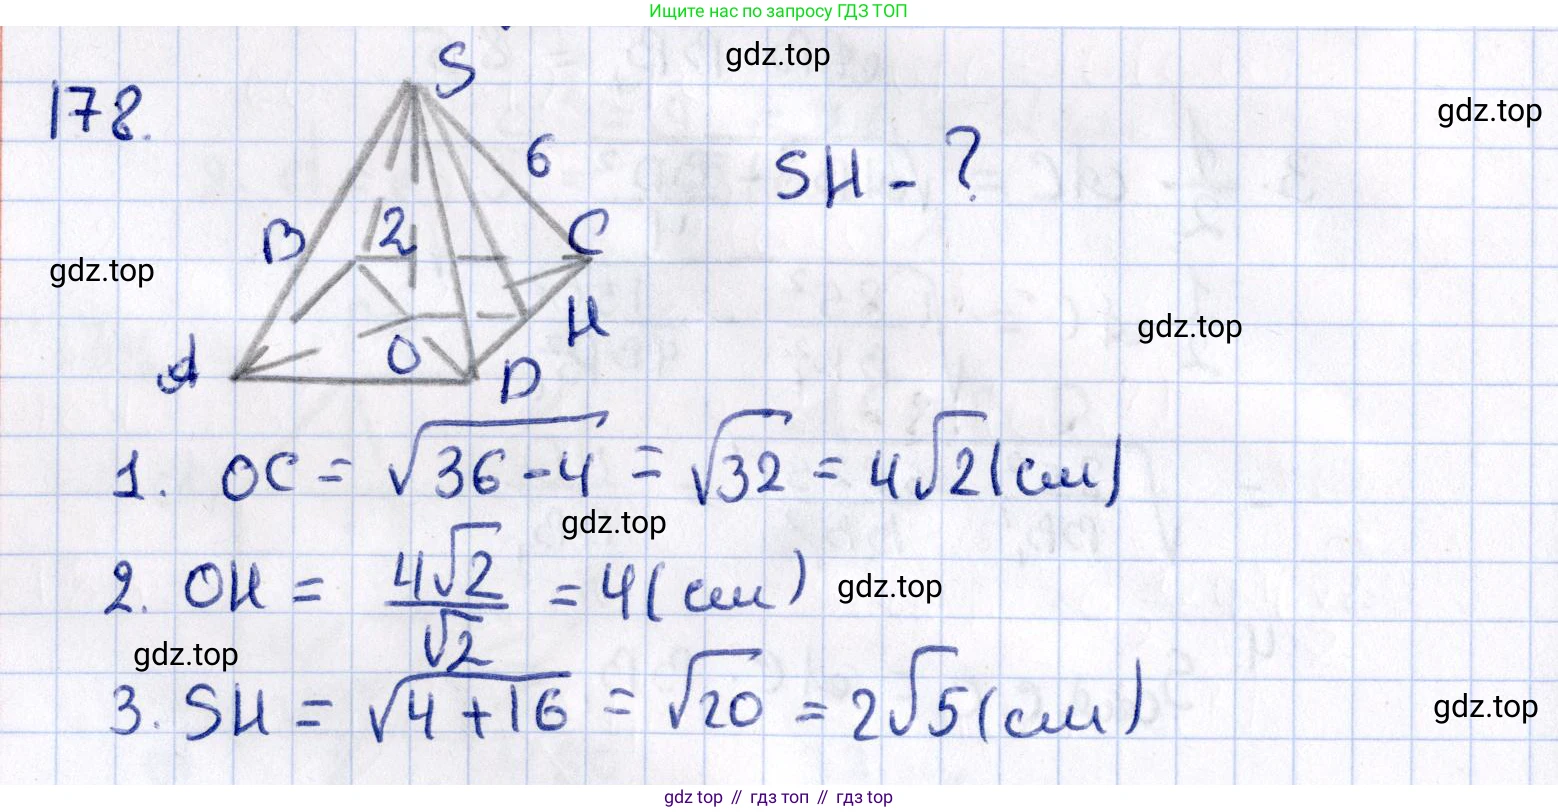 Ищите нас по запросу ГДЗ ТОП
gdz.top
gdz.top
178.
S
6
SH - ?
B
2
C
gdz.top
H
gdz.top
A
O
D
1. OC = √36-4 = √32 = 4√2 (см)
gdz.top
2. OH = 4√2/√2 = 4 (см)
gdz.top
gdz.top
3. SH = √4+16 = √20 = 2√5 (см)
gdz.top
gdz top // гдз топ // гдз top